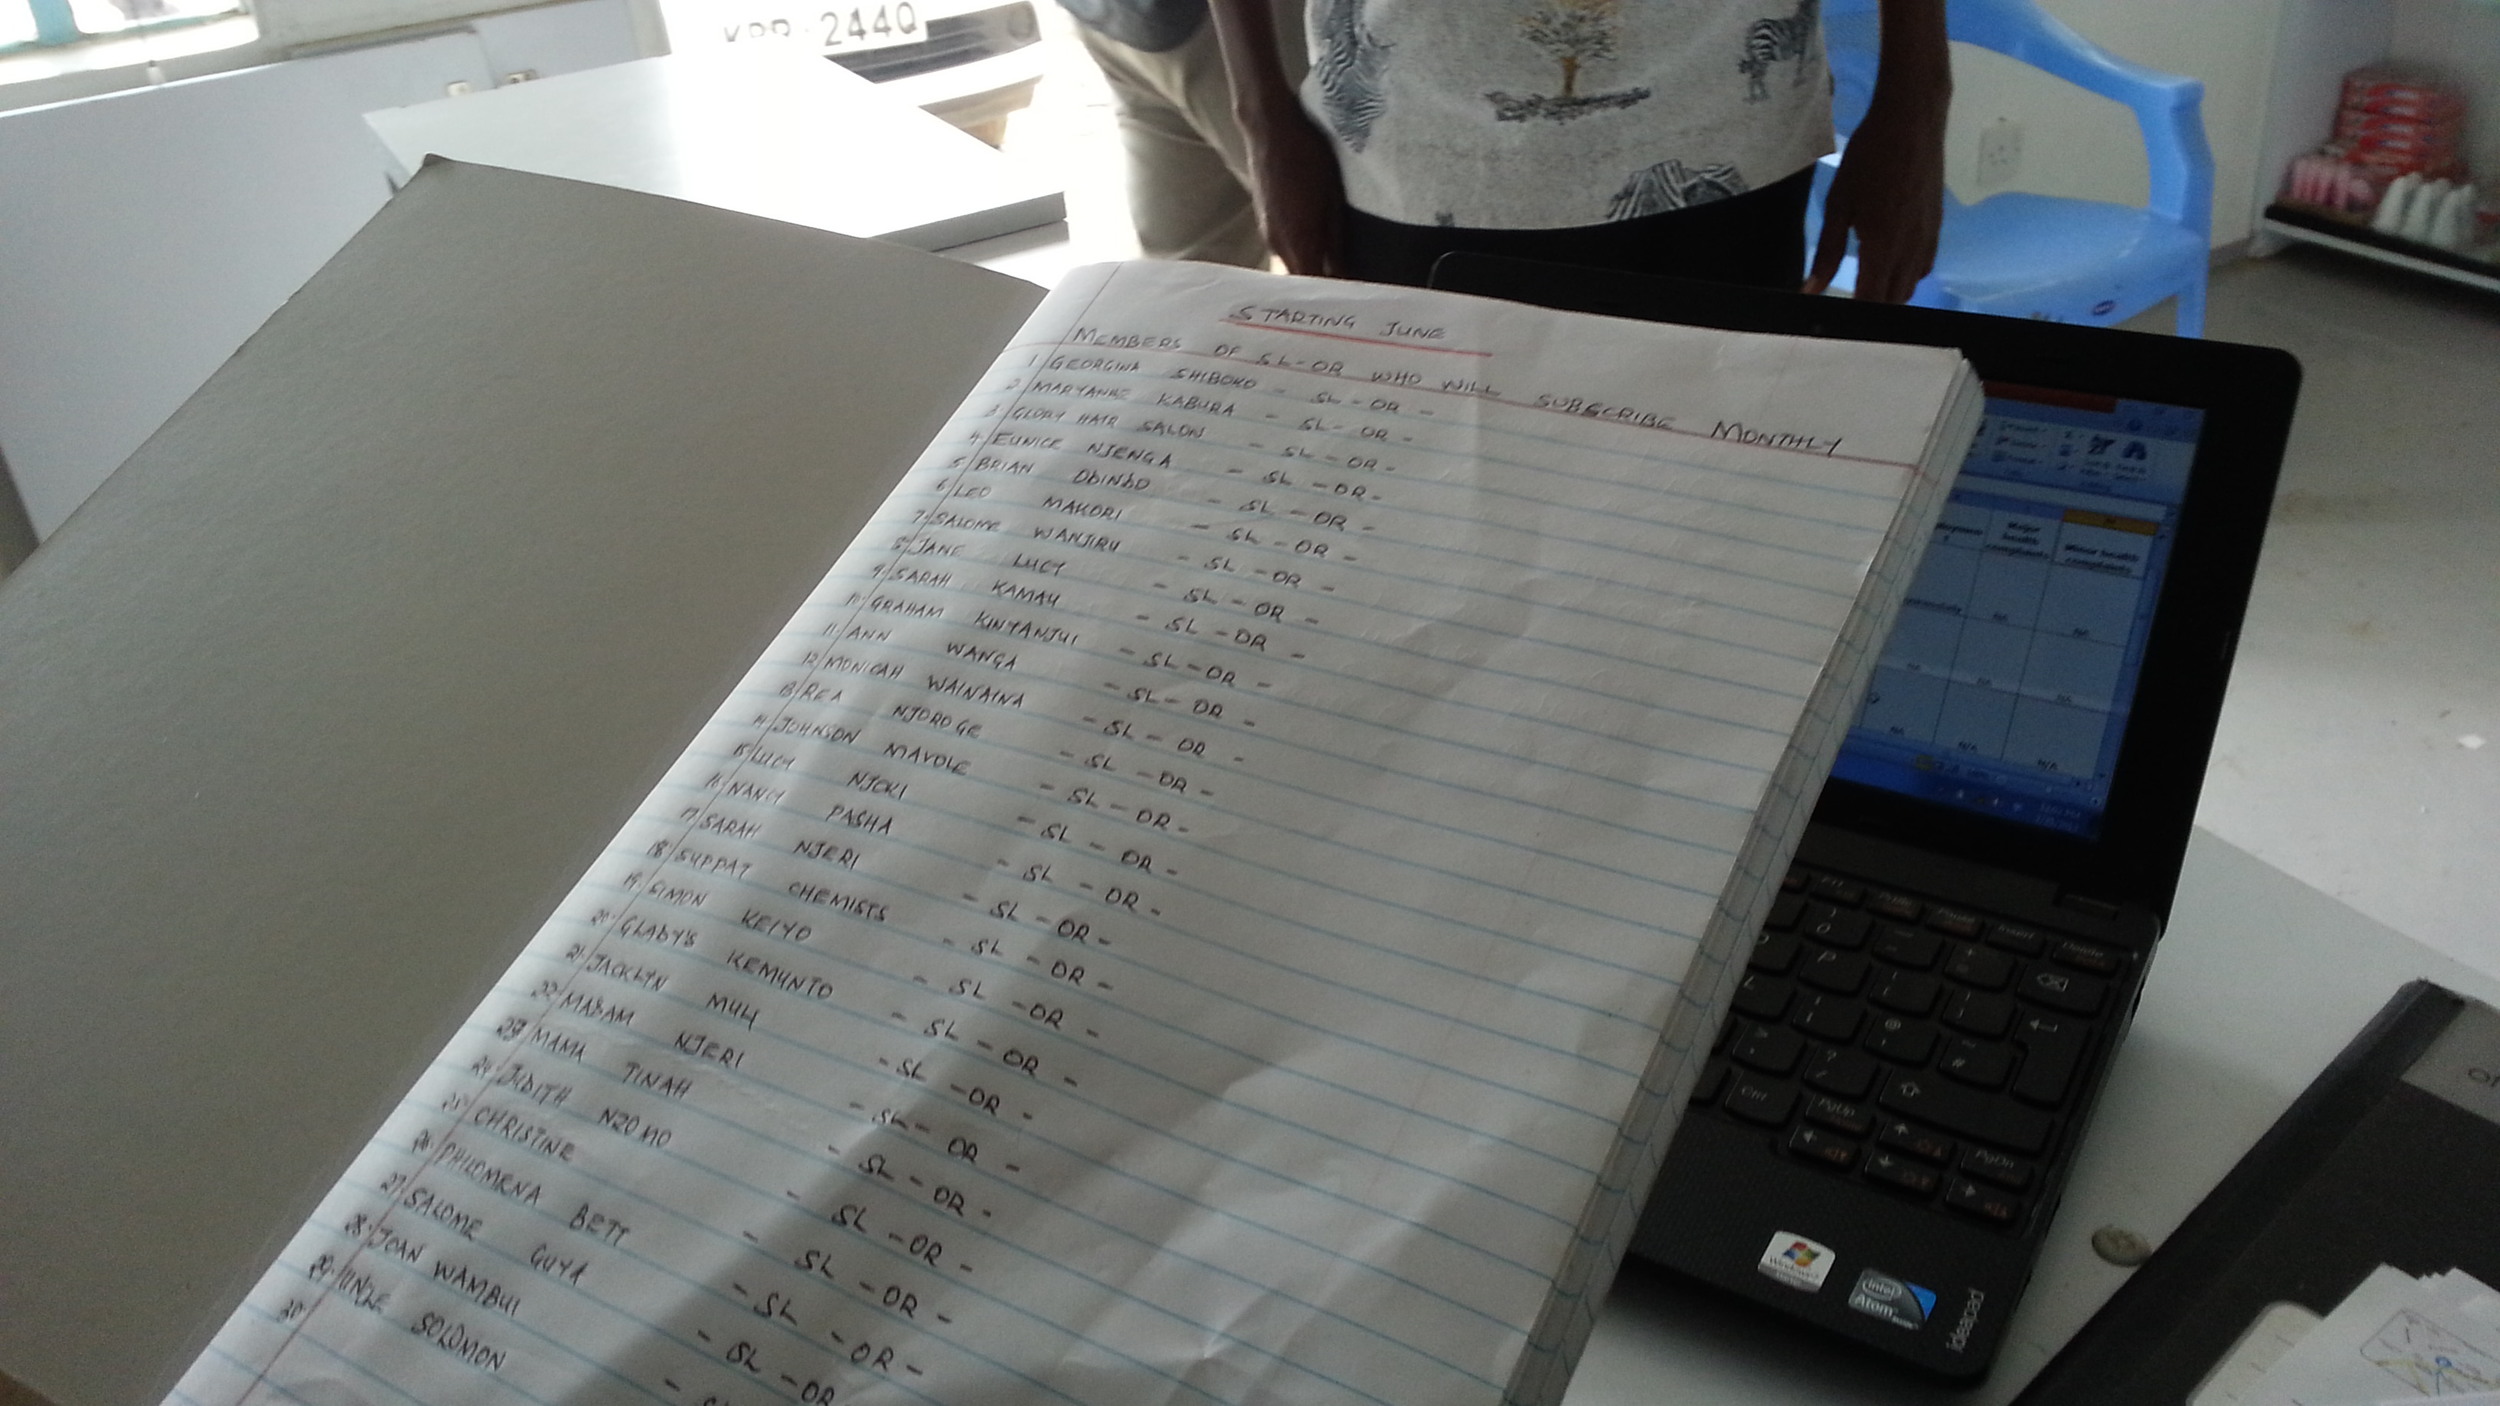 244Q
STARTING JUNE
MEMBERS OF SL-OR WHO WILL SUBSCRIBE MONTHLY
1 GEORGINA SHIBOKO - SL - OR -
2 MARYANNE KABURA - SL - OR -
3 GLORY HAIR SALON - SL - OR -
4 EUNICE NJENGA - SL - OR -
5 BRIAN - SL - OR -
6 LEO MAKORI - SL - OR -
7. SALOME WANJIRU - SL - OR -
8. JANE LUCY - SL - OR -
9. SARAH KAMAU - SL - OR -
10. GRAHAM KINYANJUI - SL - OR -
11. ANN WANGA - SL - OR -
12. MONICAH WAINAINA - SL - OR -
13. REA NJOROGE - SL - OR -
14. JOHNSON MAYOLE - SL - OR -
15. LUCY NJOKI - SL - OR -
16. NANCY PASHA - SL - OR -
17. SARAH NJERI - SL - OR -
18. SUPPAT CHEMISTS - SL - OR -
19. SIMON KEIYO - SL - OR -
20. GLADY'S KEMUNTO - SL - OR -
21. JACKLYN MULI - SL - OR -
22. MADAM NJERI - SL - OR -
23. MAMA TINAH - SL - OR -
24. JUDITH NZOMO - SL - OR -
25. CHRISTINE - SL - OR -
26. PHILOMENA BETT - SL - OR -
27. SALOME GUYA - SL - OR
28. JOAN WAMBUI
29. SOLOMON
30.
Major health complaints
Minor health complaints
NA
N/A
Insert
Delete
PgUp
PgDn
Ctrl
Windows
intel
Atom
ideapad